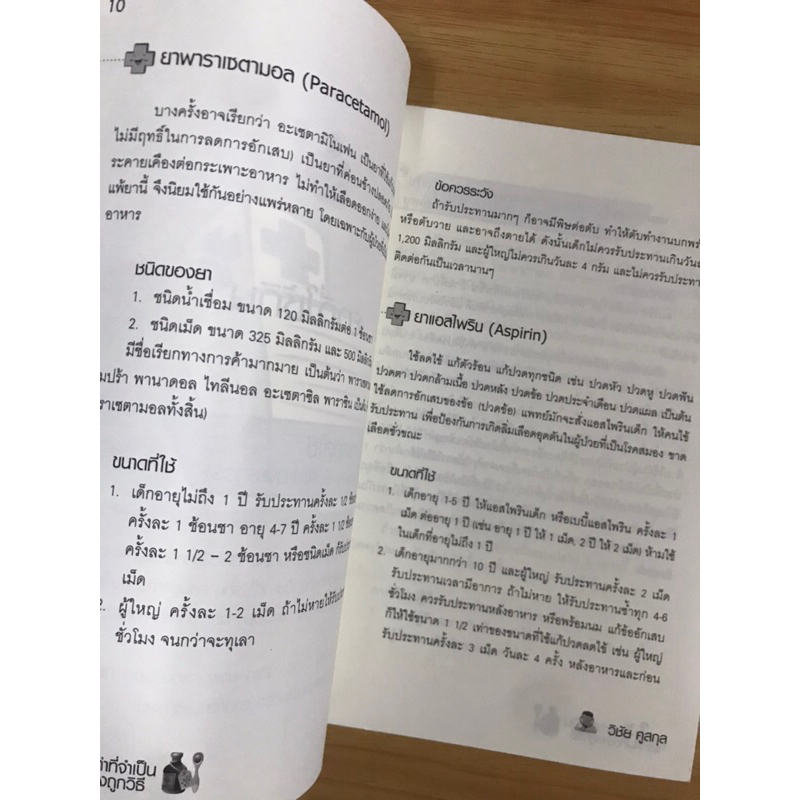 10
ยาพาราเซตามอล (Paracetamol)
บางครั้งอาจเรียกว่า อะเซตามิโนเฟน เป็นยาที่ใช้
ไม่มีฤทธิ์ในการลดการอักเสบ) เป็นยาที่ค่อนข้างปลอดภัย
ระคายเคืองต่อกระเพาะอาหาร ไม่ทำให้เลือดออกง่าย
แพ้ยานี้ จึงนิยมใช้กันอย่างแพร่หลาย โดยเฉพาะกับผู้ป่วย
อาหาร
ชนิดของยา
1. ชนิดน้ำเชื่อม ขนาด 120 มิลลิกรัมต่อ 1 ช้อนชา
2. ชนิดเม็ด ขนาด 325 มิลลิกรัม และ 500 มิลลิกรัม
มีชื่อเรียกทางการค้ามากมาย เป็นต้นว่า
มปร้า พานาดอล ไทลีนอล อะเซตาซิล พาราซิน
ราเซตามอลทั้งสิ้น)
ขนาดที่ใช้
1. เด็กอายุไม่ถึง 1 ปี รับประทานครั้งละ 1/2
ครั้งละ 1 ช้อนชา อายุ 4-7 ปี ครั้งละ 1 1/2
ครั้งละ 1 1/2 – 2 ช้อนชา หรือชนิดเม็ด
เม็ด
2. ผู้ใหญ่ ครั้งละ 1-2 เม็ด ถ้าไม่หายให้
ชั่วโมง จนกว่าจะทุเลา
ที่จำเป็น
ถูกวิธี
ข้อควรระวัง
ถ้ารับประทานมากๆ ก็อาจมีพิษต่อตับ ทำให้ตับทำงานบกพร่
หรือตับวาย และอาจถึงตายได้ ดังนั้นเด็กไม่ควรรับประทานเกินวัน
1,200 มิลลิกรัม และผู้ใหญ่ไม่ควรเกินวันละ 4 กรัม และไม่ควรรับประท
ติดต่อกันเป็นเวลานานๆ
ยาแอสไพริน (Aspirin)
ใช้ลดไข้ แก้ตัวร้อน แก้ปวดทุกชนิด เช่น ปวดหัว ปวดหู ปวดฟัน
ปวดตา ปวดกล้ามเนื้อ ปวดหลัง ปวดข้อ ปวดประจำเดือน ปวดแผล เป็นต้น
ใช้ลดการอักเสบของข้อ (ปวดข้อ) แพทย์มักจะสั่งแอสไพรินเด็ก ให้คนไข้
รับประทาน เพื่อป้องกันการเกิดลิ่มเลือดอุดตันในผู้ป่วยที่เป็นโรคสมอง ขาด
เลือดชั่วขณะ
ขนาดที่ใช้
1. เด็กอายุ 1-5 ปี ให้แอสไพรินเด็ก หรือเบบี้แอสไพริน ครั้งละ 1
เม็ด ต่ออายุ 1 ปี (เช่น อายุ 1 ปี ให้ 1 เม็ด, 2 ปี ให้ 2 เม็ด) ห้ามใช้
ในเด็กที่อายุไม่ถึง 1 ปี
2. เด็กอายุมากกว่า 10 ปี และผู้ใหญ่ รับประทานครั้งละ 2 เม็ด
รับประทานเวลามีอาการ ถ้าไม่หาย ให้รับประทานซ้ำทุก 4-6
ชั่วโมง ควรรับประทานหลังอาหาร หรือพร้อมนม แก้ข้ออักเสบ
ก็ให้ใช้ขนาด 1 1/2 เท่าของขนาดที่ใช้แก้ปวดลดไข้ เช่น ผู้ใหญ่
รับประทานครั้งละ 3 เม็ด วันละ 4 ครั้ง หลังอาหารและก่อน
วิชัย คูสกุล